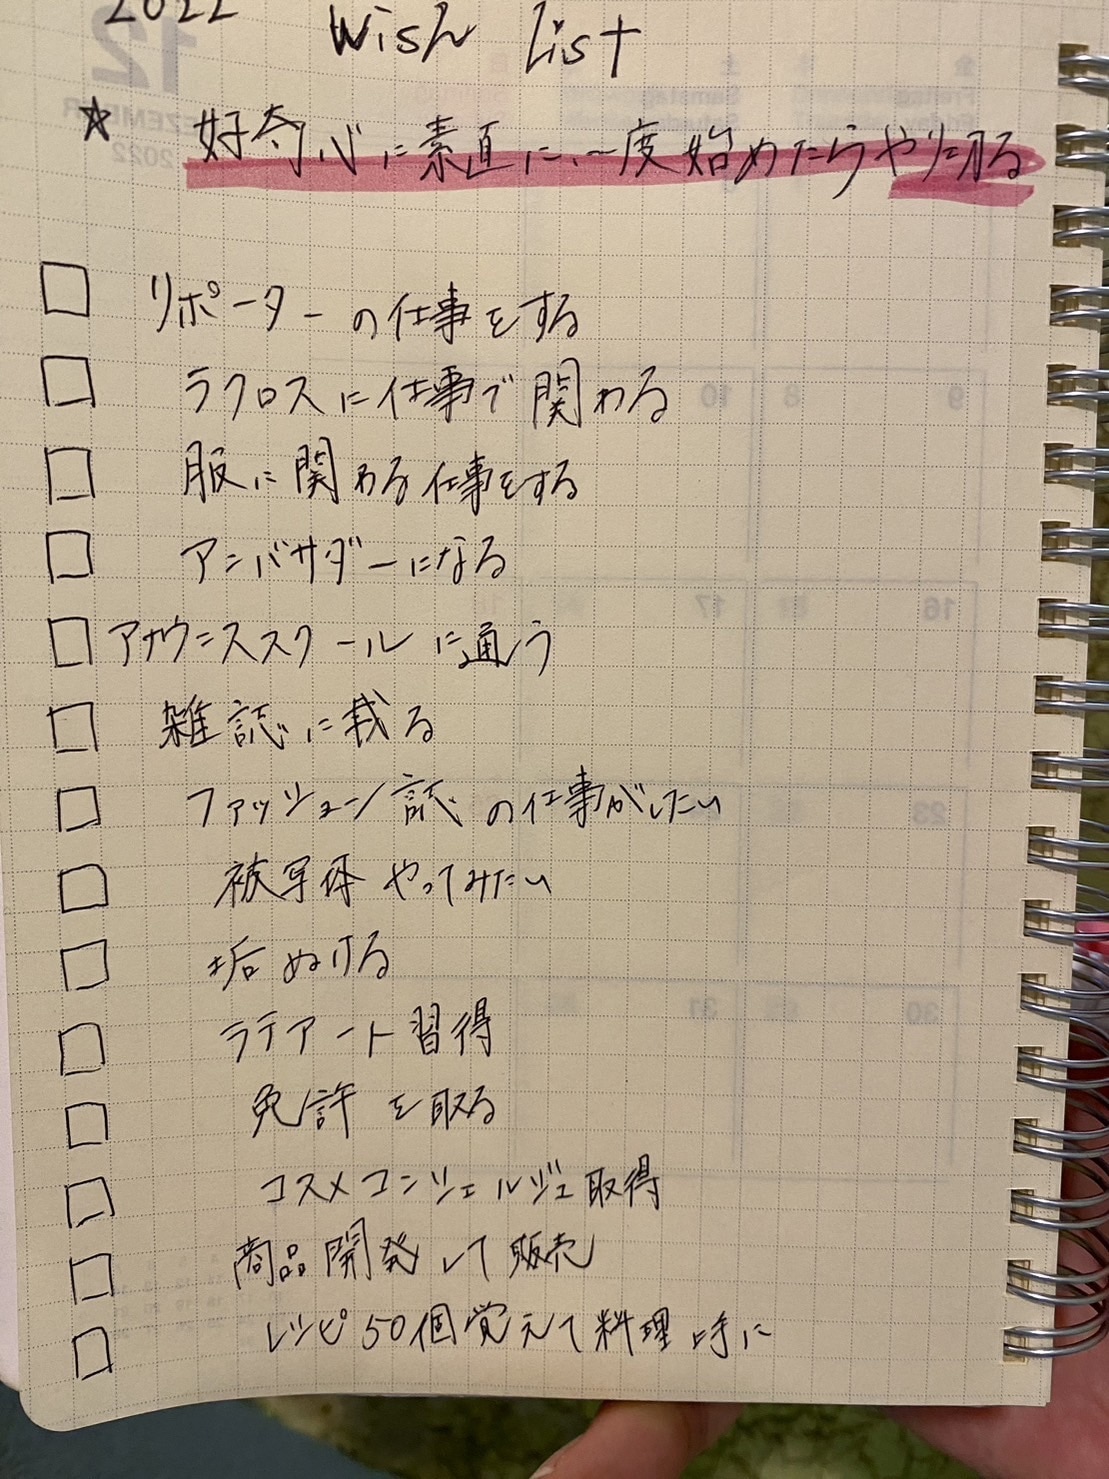 2022 Wish List
☆ 好奇心に素直に、一度始めたらやり切る
□ リポーターの仕事をする
□ ラクロスに仕事で関わる
□ 服に関わる仕事をする
□ アンバサダーになる
□ アナウンススクールに通う
□ 雑誌に載る
□ ファッション誌の仕事がしたい
□ 被写体やってみたい
□ 垢ぬける
□ ラテアート習得
□ 免許を取る
□ コスメコンシェルジュ取得
□ 商品開発して販売
□ レシピ50個覚えて料理上手に